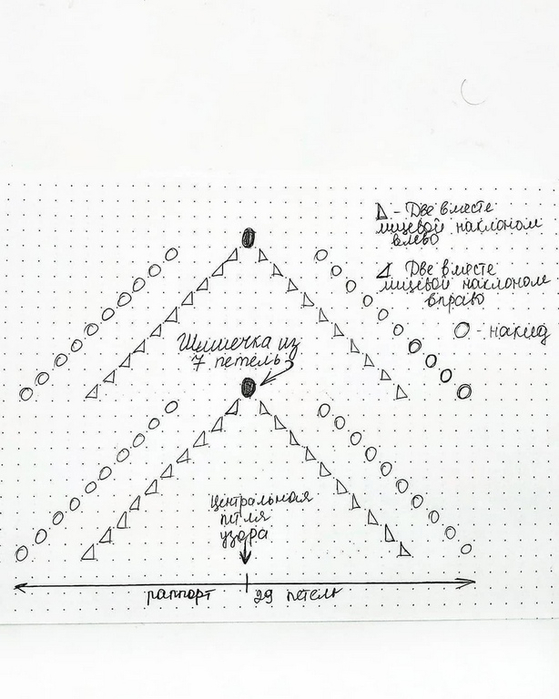 ◺ - Две вместе
лицевой наклоном
влево
⊿ Две вместе
лицевой наклоном
вправо
O - накид
Шишечка из
7 петель
Центральная
петля
узора
раппорт 29 петель